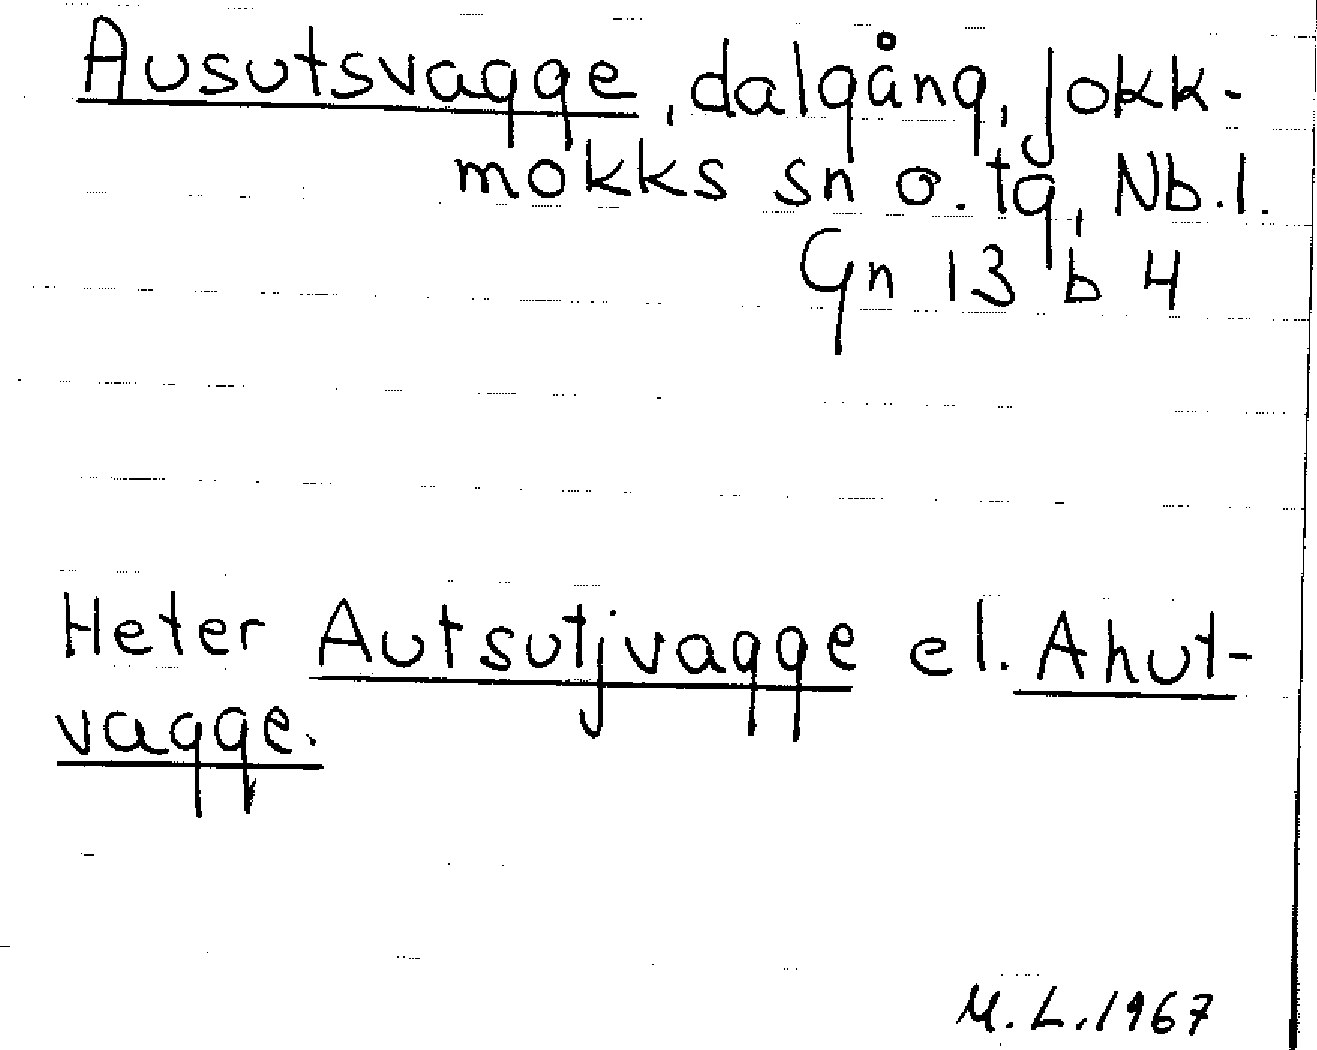 Ausutsvagge, dalgång, Jokk-
mokks sn o. tg, Nb.l.
Gn 13 b 4
Heter Autsutjvagge el. Ahut-
vagge.
M.L.1967